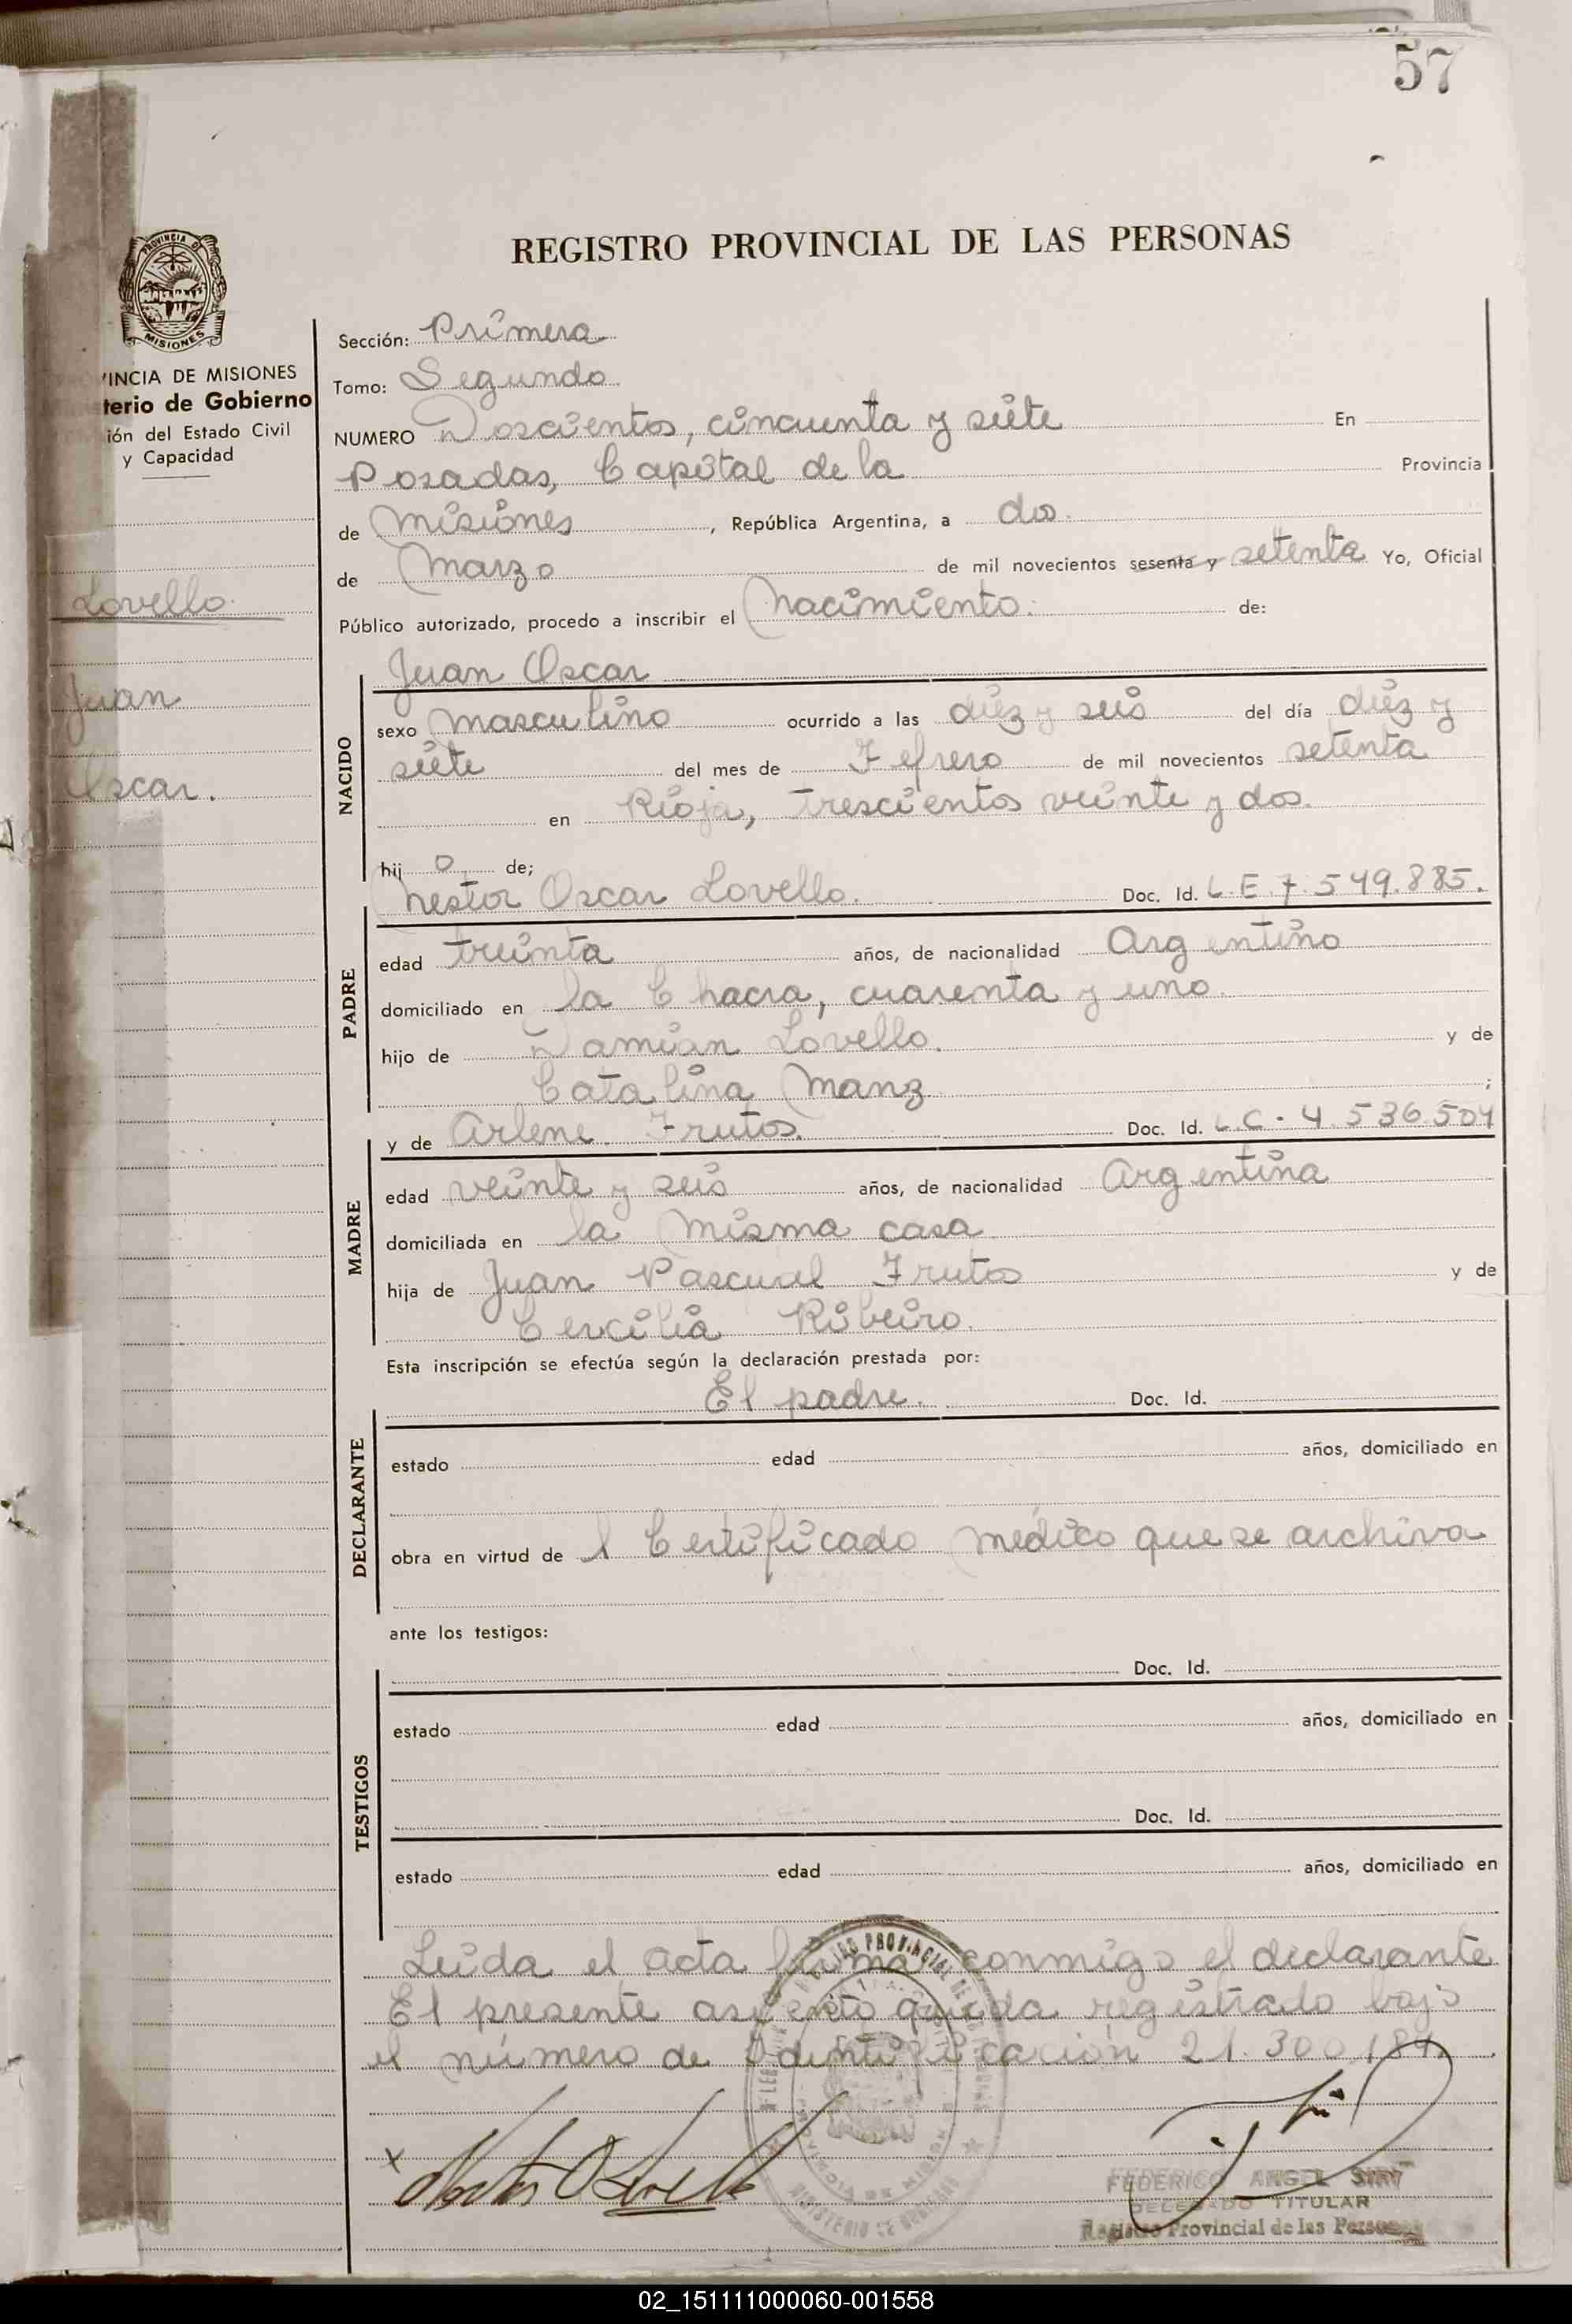 57
REGISTRO PROVINCIAL DE LAS PERSONAS
PROVINCIA DE
MISIONES
VINCIA DE MISIONES
terio de Gobierno
ión del Estado Civil
y Capacidad
Lovello.
Juan
Oscar.
Sección: Primera
Tomo: Segundo
NUMERO Doscientos, cincuenta y siete En
Posadas, Capital de la Provincia
de Misiones, República Argentina, a dos.
de Marzo de mil novecientos sesenta y setenta Yo, Oficial
Público autorizado, procedo a inscribir el Nacimiento. de:
Juan Oscar
NACIDO
sexo Masculino ocurrido a las diez y seis del día diez y
siete del mes de Febrero de mil novecientos setenta
en Rioja, trescientos veinte y dos.
hij o de;
Nestor Oscar Lovello. Doc. Id. L.E. 7.549.885.
PADRE
edad treinta años, de nacionalidad Argentino
domiciliado en la Chacra, cuarenta y uno.
hijo de Damian Lovello. y de
Catalina Manz ;
y de Arlene Frutos. Doc. Id. L.C. - 4.536.504
MADRE
edad veinte y seis años, de nacionalidad Argentina
domiciliada en la misma casa
hija de Juan Pascual Frutos y de
Cercilia Ribeiro.
Esta inscripción se efectúa según la declaración prestada por:
El padre. Doc. Id.
DECLARANTE
estado edad años, domiciliado en
obra en virtud de l Certificado médico que se archiva
ante los testigos:
Doc. Id.
TESTIGOS
estado edad años, domiciliado en
Doc. Id.
estado edad años, domiciliado en
Leida el acta firma conmigo el declarante
El presente asiento queda registrado bajo
el número de Identificación 21.300.184
x Nestor O Lovello
FEDERICO ANGEL
DELEGADO TITULAR
Registro Provincial de las Personas
02_151111000060-001558